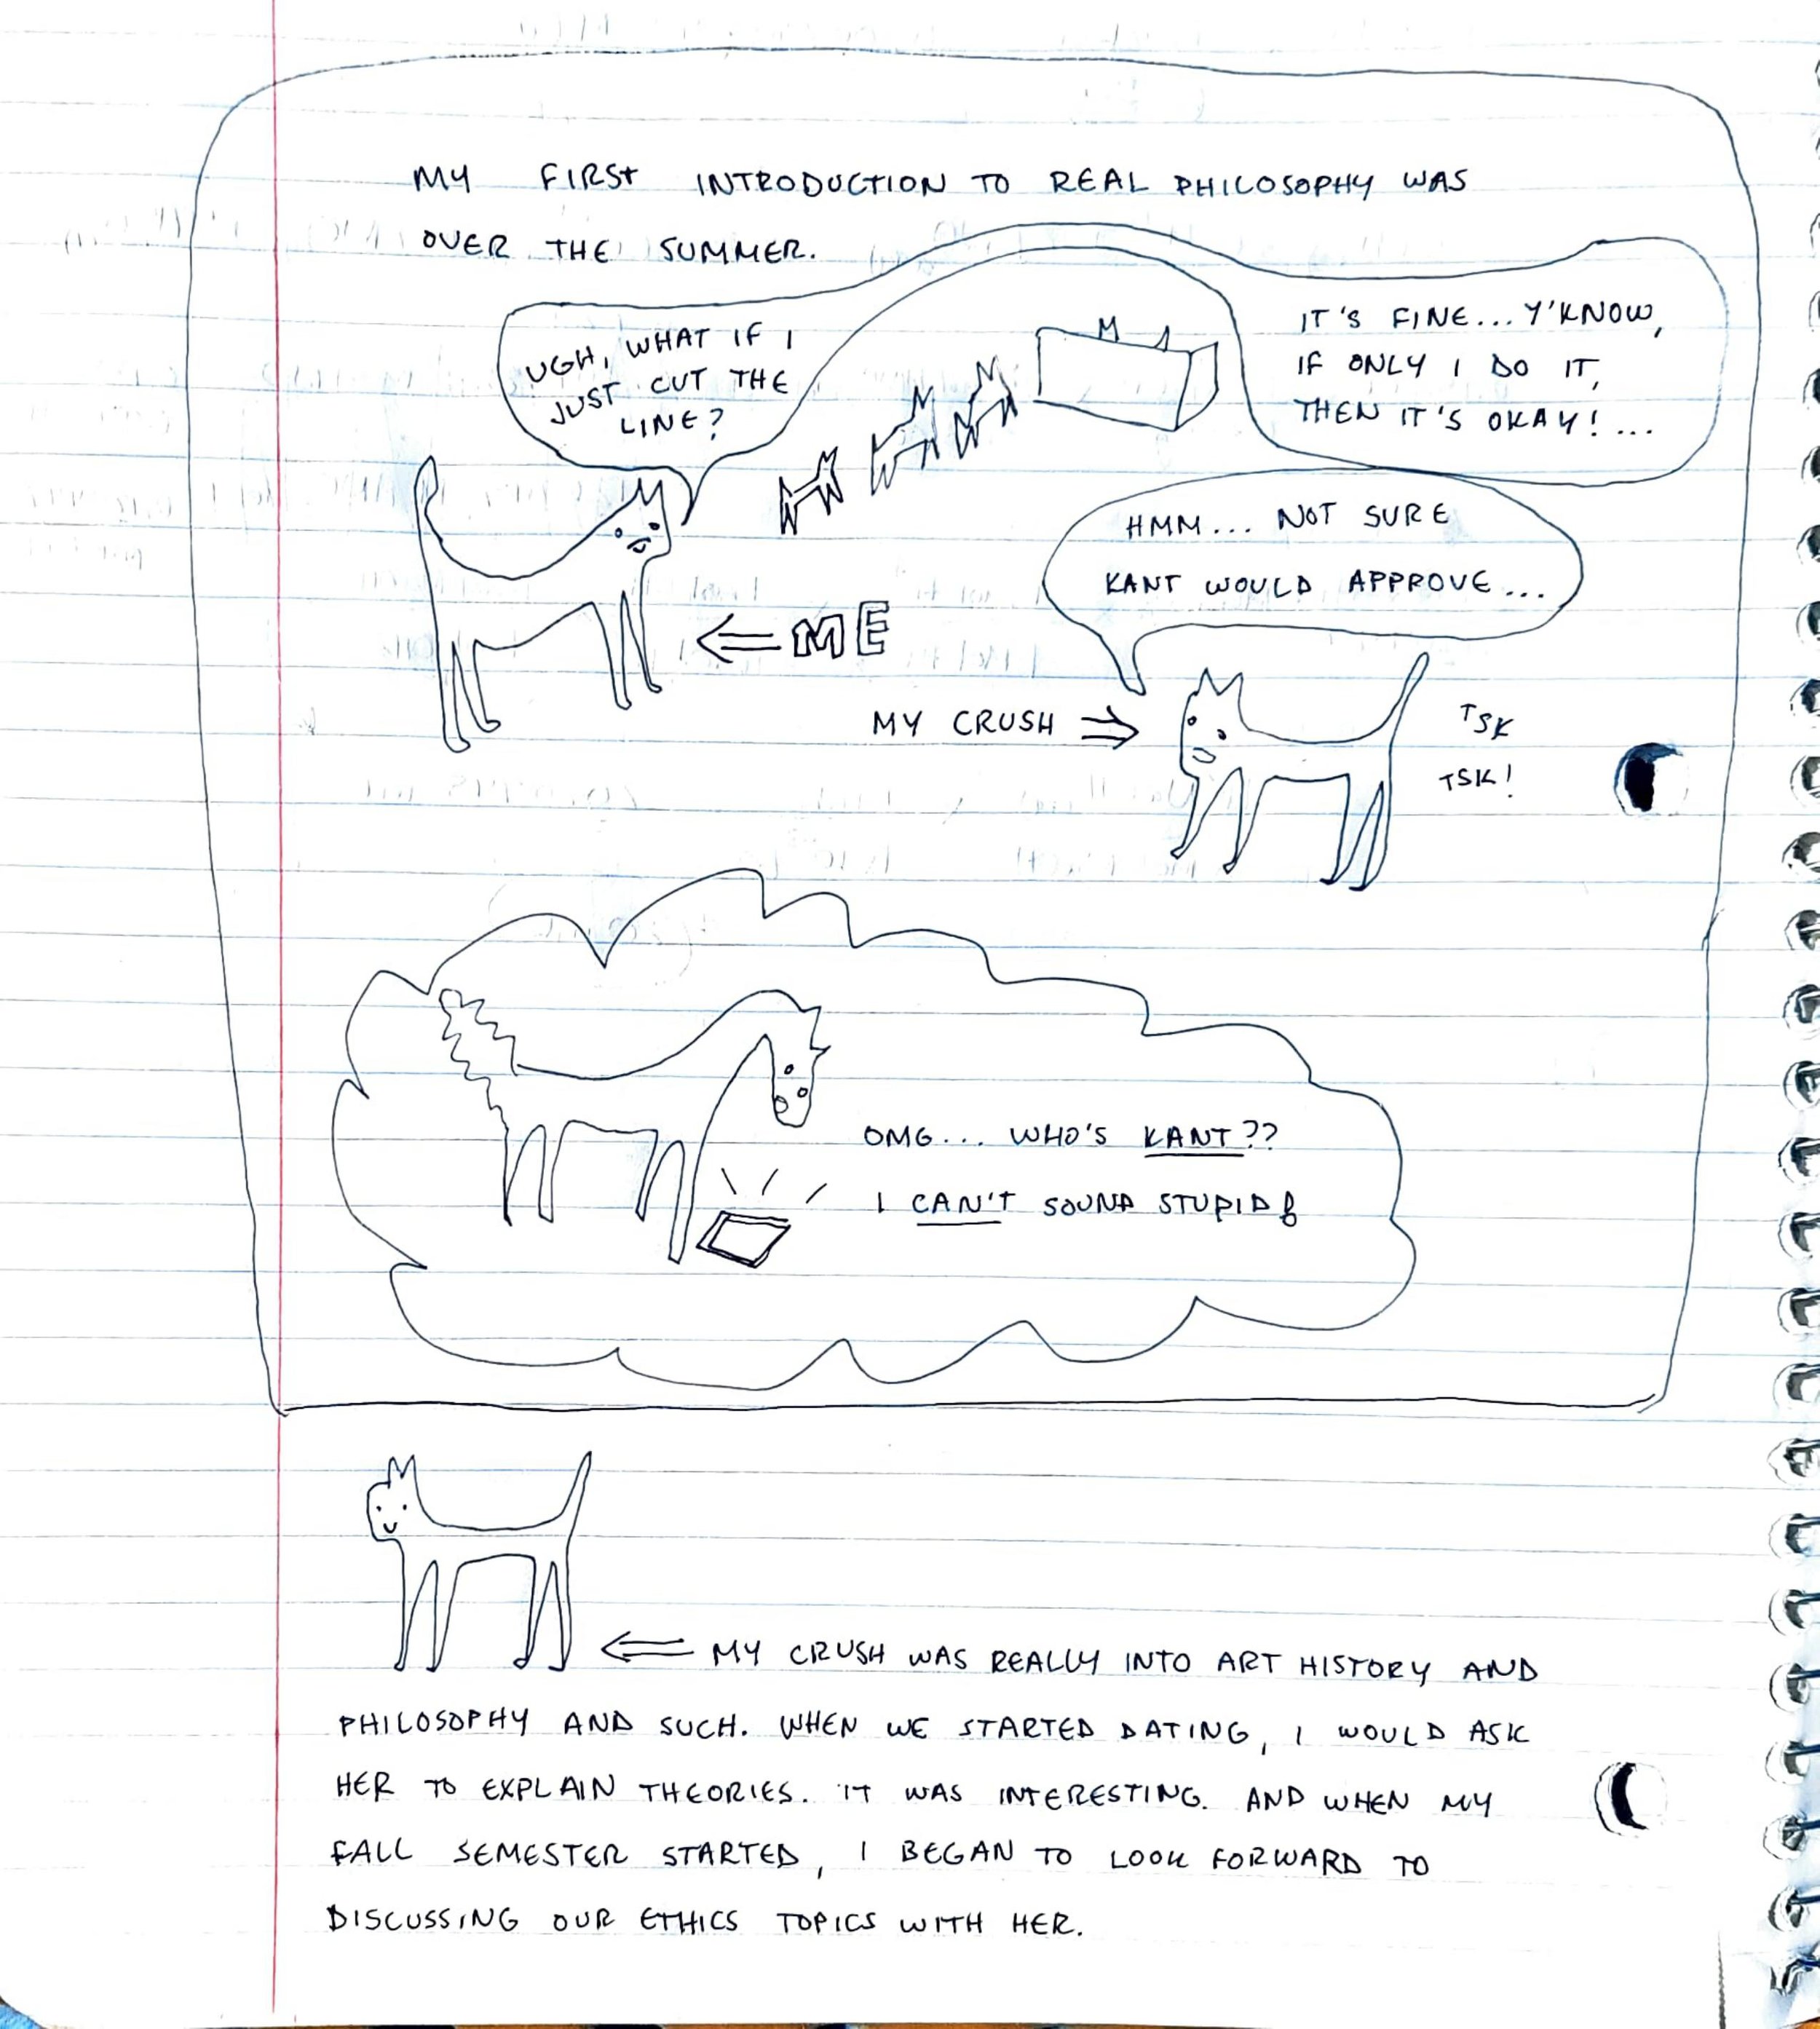 MY FIRST INTRODUCTION TO REAL PHILOSOPHY WAS
OVER THE SUMMER.
UGH, WHAT IF I
JUST CUT THE
LINE?
IT'S FINE... Y'KNOW,
IF ONLY I DO IT,
THEN IT'S OKAY!...
HMM... NOT SURE
KANT WOULD APPROVE...
ME
MY CRUSH
TSK
TSK!
OMG... WHO'S KANT??
I CAN'T SOUND STUPID!
MY CRUSH WAS REALLY INTO ART HISTORY AND
PHILOSOPHY AND SUCH. WHEN WE STARTED DATING, I WOULD ASK
HER TO EXPLAIN THEORIES. IT WAS INTERESTING. AND WHEN MY
FALL SEMESTER STARTED, I BEGAN TO LOOK FORWARD TO
DISCUSSING OUR ETHICS TOPICS WITH HER.